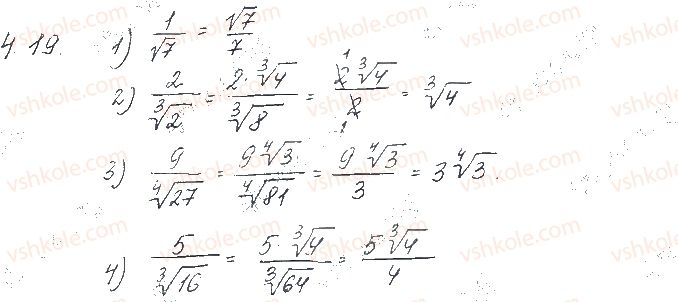 4.19. 1) \frac{1}{\sqrt{7}} = \frac{\sqrt{7}}{7}
2) \frac{2}{\sqrt[3]{2}} = \frac{2 \cdot \sqrt[3]{4}}{\sqrt[3]{8}} = \frac{\overset{1}{\cancel{2}} \sqrt[3]{4}}{\underset{1}{\cancel{2}}} = \sqrt[3]{4}
3) \frac{9}{\sqrt[4]{27}} = \frac{9 \sqrt[4]{3}}{\sqrt[4]{81}} = \frac{9 \sqrt[4]{3}}{3} = 3 \sqrt[4]{3}.
4) \frac{5}{\sqrt[3]{16}} = \frac{5 \sqrt[3]{4}}{\sqrt[3]{64}} = \frac{5 \sqrt[3]{4}}{4}
vshkole.com